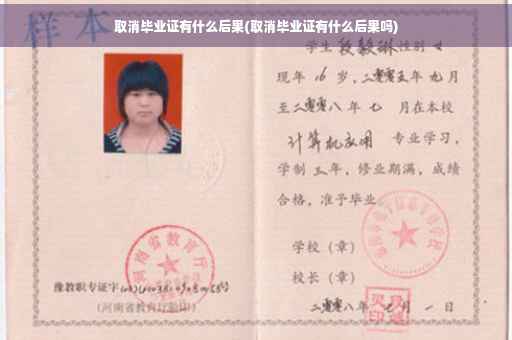 取消毕业证有什么后果(取消毕业证有什么后果吗)
样本
学生 段毅琳 性别 女
现年 16 岁，二零零五年 九 月
至二零零八 年 七 月在本校
计算机应用 专业学习，
学制 三 年，修业期满，成绩
合格，准予毕业
学校（章）
河南省教育厅
校长（章）
豫教职专证字
(河南省教育厅验印)
二零零八年 七 月 一 日